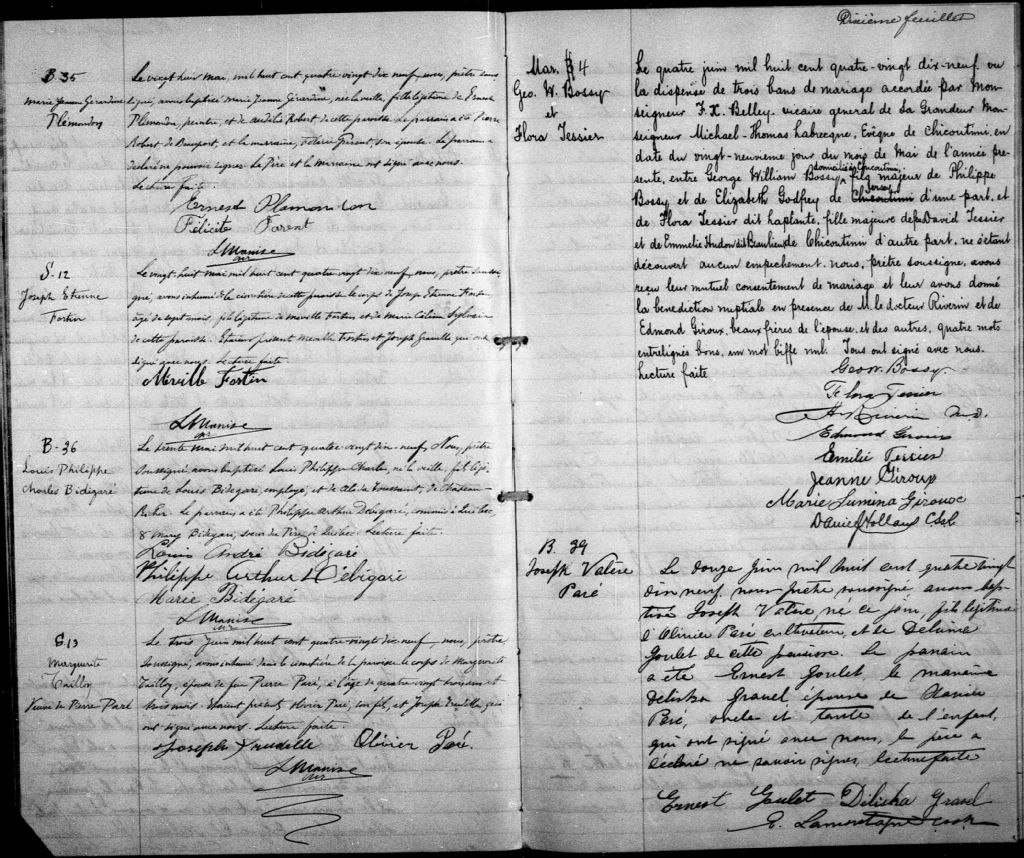 B 35
Marie Jeanne Girardine
Plemondon
Le vingt huit mai, mil huit cent quatre vingt dix neuf, nous, prêtre sous
signé, avons baptisé Marie Jeanne Girardine, née la veille, fille légitime de Ernest
Plemondon, peintre, et de Robert de cette paroisse. Le parrain a été Pierre
Robert de Beauport, et la marraine, Félicité Parent, son épouse. Le parrain a
déclaré ne pouvoir signer. Le Père et la Marraine ont signé avec nous.
Lecture faite.
Ernest Plamondon
Félicité Parent
S. 12
Joseph Etienne
Fortin
Le vingt huit mai mil huit cent quatre vingt dix neuf, nous, prêtre sous
gné, avons inhumé dans le cimetière de cette paroisse le corps de Joseph Etienne Fortin
âgé de sept mois, fils légitime de Merille Fortin et de Marie Sylvain
de cette paroisse. Etaient présent Merille Fortin et Joseph qui ont
signé avec nous. Lecture faite
Merille Fortin
B - 36
Louis Philippe
Charles Bidégaré
Le trente mai mil huit cent quatre vingt dix neuf, Nous, prêtre
soussigné, avons baptisé Louis Philippe Charles, né la veille, fils légi
time de Louis Bidégaré, employé, et de Toussaint, de Château-
Richer. Le parrain a été Philippe Arthur Debigaré, commis à Québec
& Mary Bidégaré, soeur du Père de Québec. Lecture faite.
Louis André Bidégaré
Philippe Arthur Débigaré
Marie Bidégaré
S 13
Marguerite
Taillon
Veuve de Pierre Paré
Le trois Juin mil huit cent quatre-vingts dix neuf, nous, prêtre
soussigné, avons inhumé dans le cimetière de la paroisse le corps de Marguerite
Taillon, épouse de feu Pierre Paré, à l'âge de quatre vingt trois ans et
trois mois. Etaient présents Olivier Paré, son fils, et Joseph Trudelle, qui
ont signé avec nous. Lecture faite
Joseph Trudelle Olivier Paré.
Dixième feuillet
Mar. 4
Geo. W. Bossy
et
Flora Tessier
Le quatre juin mil huit cent quatre-vingt dix-neuf vu
la dispense de trois bans de mariage accordée par Mon-
seigneur F. X. Belley, vicaire general de Sa Grandeur Mon-
seigneur Michael-Thomas Labrecque, Evêque de Chicoutimi, en
date du vingt-neuvieme jour du mois de Mai de l'année pre-
domicilié à Chicoutimi,
sente, entre George William Bossy fils majeur de Philippe
Jersey
Bossy et de Elizabeth Godfrey de Chicoutimi d'une part, et
de Flora Tessier dit Laplante, fille majeure de feu David Tessier
et de Emmelie Hudon dit Beaulieu, de Chicoutimi d'autre part, ne s'étant
découvert aucun empechement, nous, prêtre soussigne, avons
reçu leur mutuel consentement de mariage et leur avons donné
la benediction nuptiale en presence de M. le docteur Riverin et de
Edmond Giroux, beaux frères de l'épouse, et des autres, quatre mots
entrelignés bons, un mot biffé nul. Tous ont signé avec nous.
Lecture faite.
Geo W. Bossy
Flora Tessier
Riverin M.D.
Edmond Giroux
Emilie Tessier
Jeanne Giroux
Marie Lumina Giroux
B. 39
Joseph Valère
Paré
Le douze Juin mil huit cent quatre vingt
dix neuf, nous prêtre soussigné avons bap
tisé Joseph Valère né ce jour, fils légitime
d'Olivier Paré cultivateur, et de Delima
Goulet de cette paroisse. Le parrain
a été Ernest Goulet, la marraine
Delisha Gravel épouse de
Paré, oncle et tante de l'enfant,
qui ont signé avec nous, le père a
déclaré ne savoir signer, lecture faite
Ernest Goulet Delisha Gravel